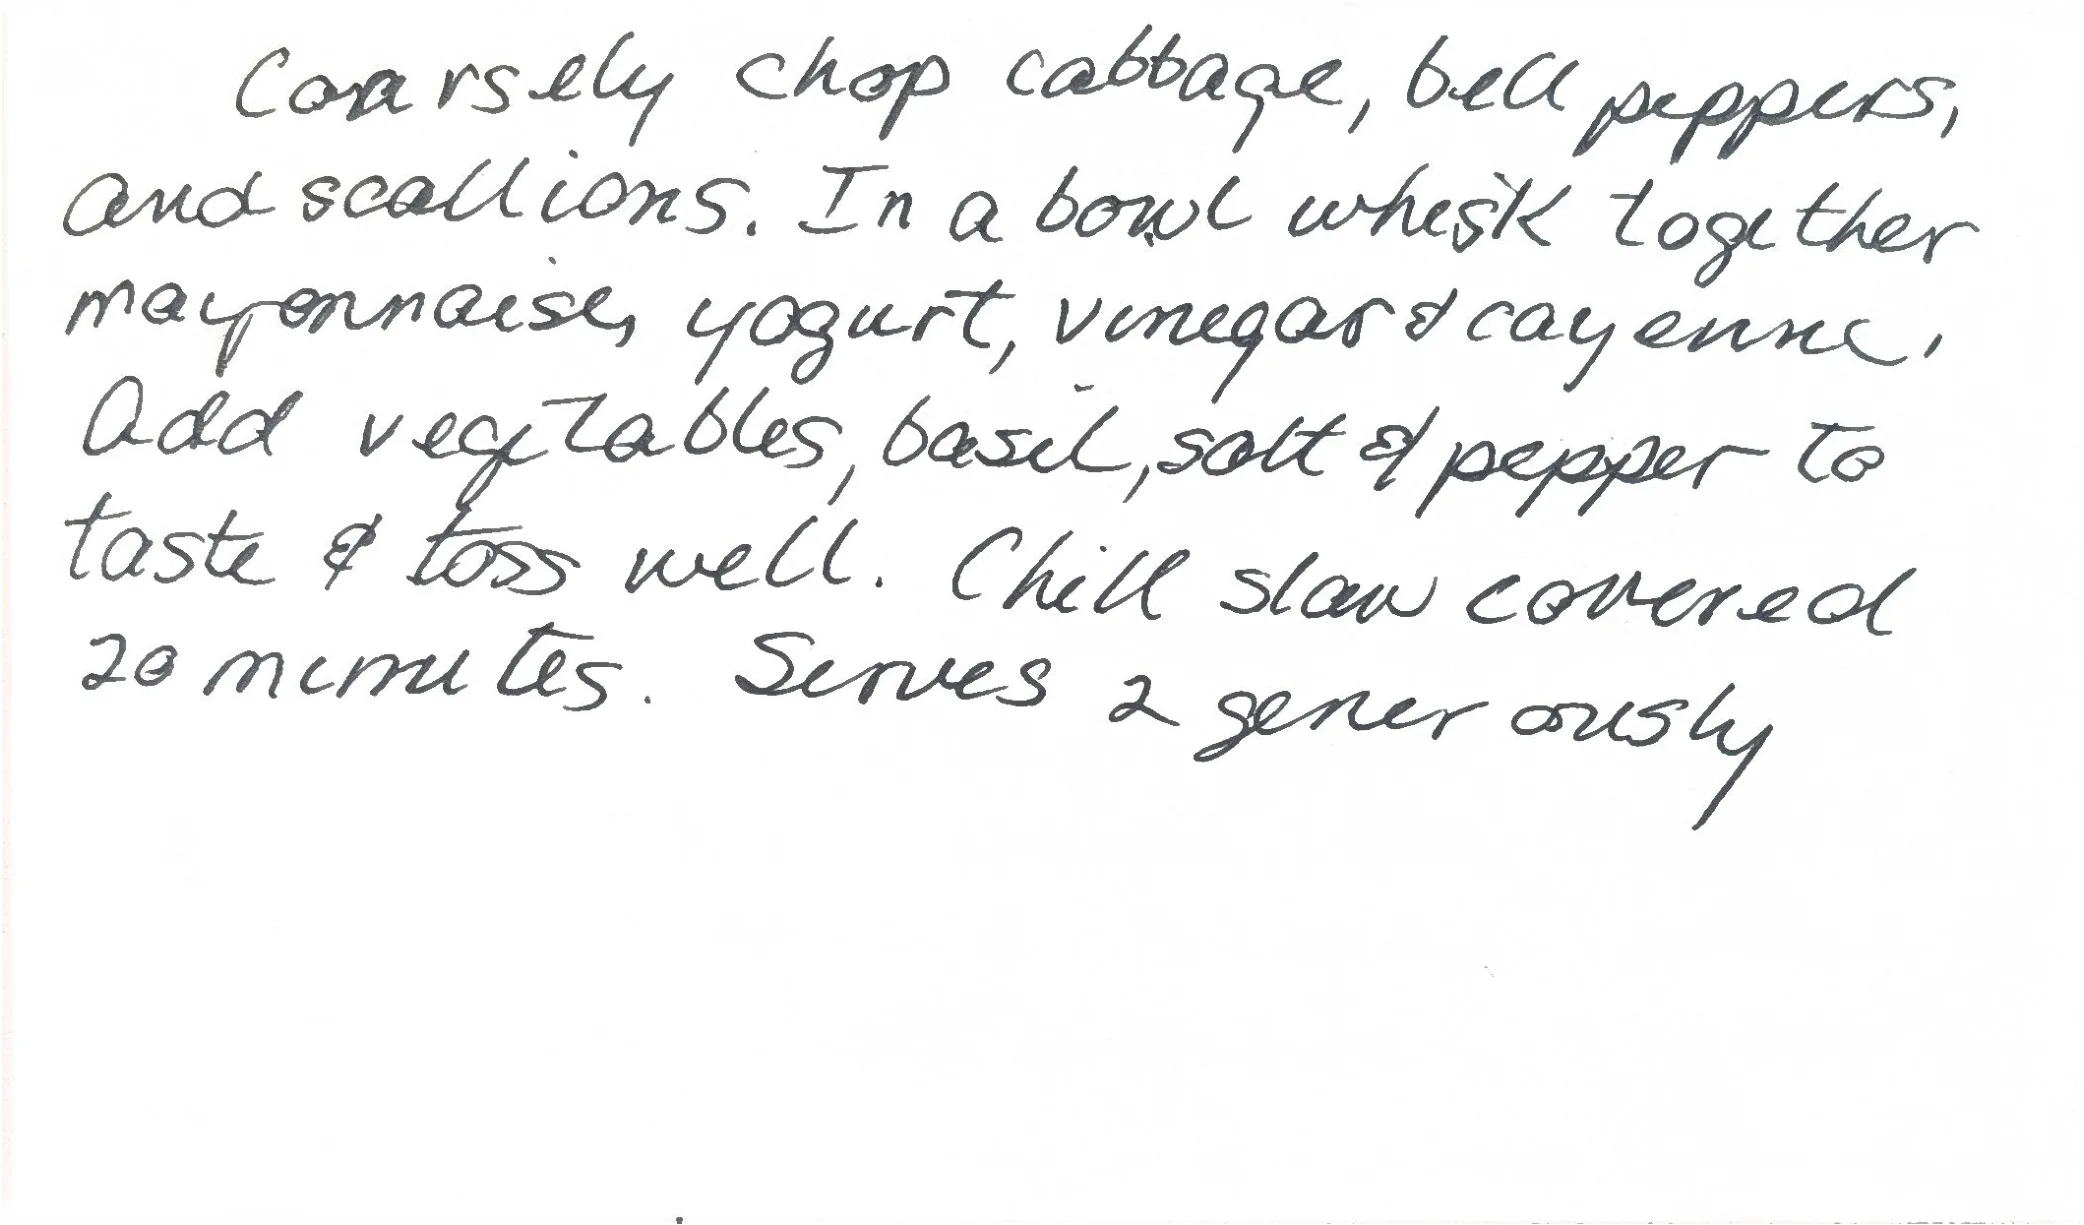 Coarsely chop cabbage, bell peppers,
and scallions. In a bowl whisk together
mayonnaise, yogurt, vinegar & cayenne.
Add vegetables, basil, salt & pepper to
taste & toss well. Chill slaw covered
20 minutes. Serves 2 generously